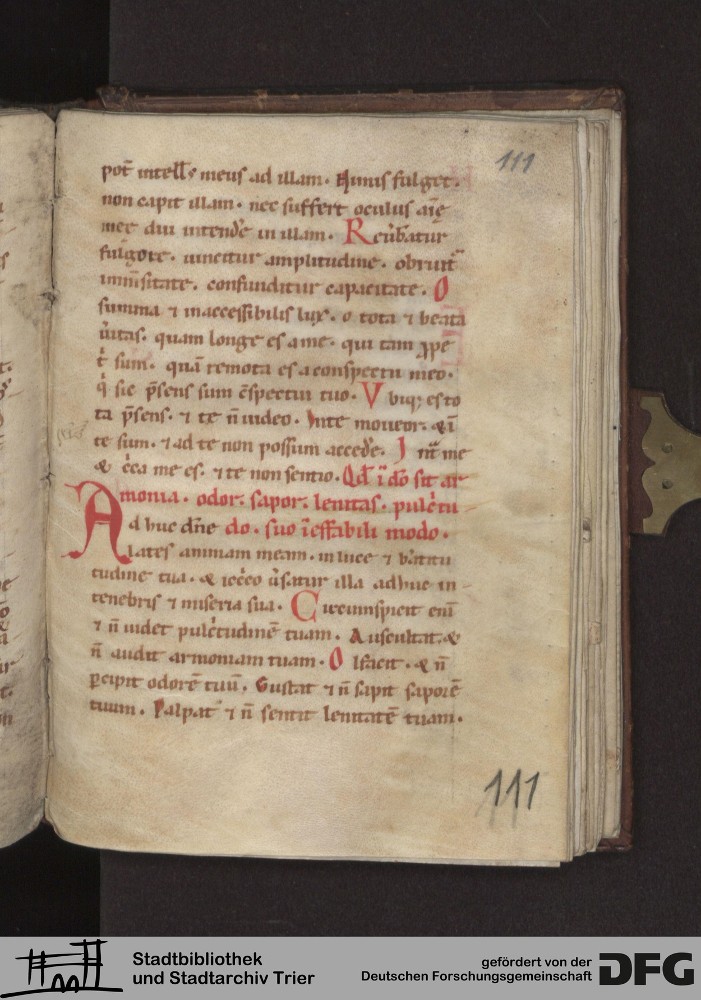 111
pot̄ intell̄s meus ad illam. Nimis fulget.
non capit illam. nec suffert oculus aīę
meę diu intend̄e in illam. Reūb̄atur
fulgore. uincitur amplitudine. obruit᷑
inm̄sitate. confunditur capacitate. O
summa ⁊ inaccessibilis lux. o tota ⁊ beata
ūitas. quam longe es a me. qui tam ꝓpe
t̄ sum. quā remota es a conspectu meo.
q̄ sic p̄sens sum c̄spectui tuo. Vbiq; es to
ta p̄sens. ⁊ te n̄ uideo. Inte moueor. & ī
te sum. ⁊ ad te non possum acced̄e. Int᷑ me
& c̄ca me es. ⁊ te non sentio. Qd̄ ī dō sit ar
monia. odor. sapor. lenitas. pulc̄tu
Adhuc dn̄e do. suo īeffabili modo.
lates animam meam. in luce ⁊ b̄titu
tudine tua. & iccc̄o ūsatur illa adhuc in
tenebris ⁊ miseria sua. Circumspicit enī
⁊ n̄ uidet pulc̄tudinē tuam. Auscultat. &
n̄ audit armoniam tuam. Olfacit. & n̄
ꝑcipit odorē tuū. Gustat ⁊ n̄ sapit saporē
tuum. Palpat ⁊ n̄ sentit lenitatē tuam.
111
Stadtbibliothek
und Stadtarchiv Trier
gefördert von der
Deutschen Forschungsgemeinschaft
DFG